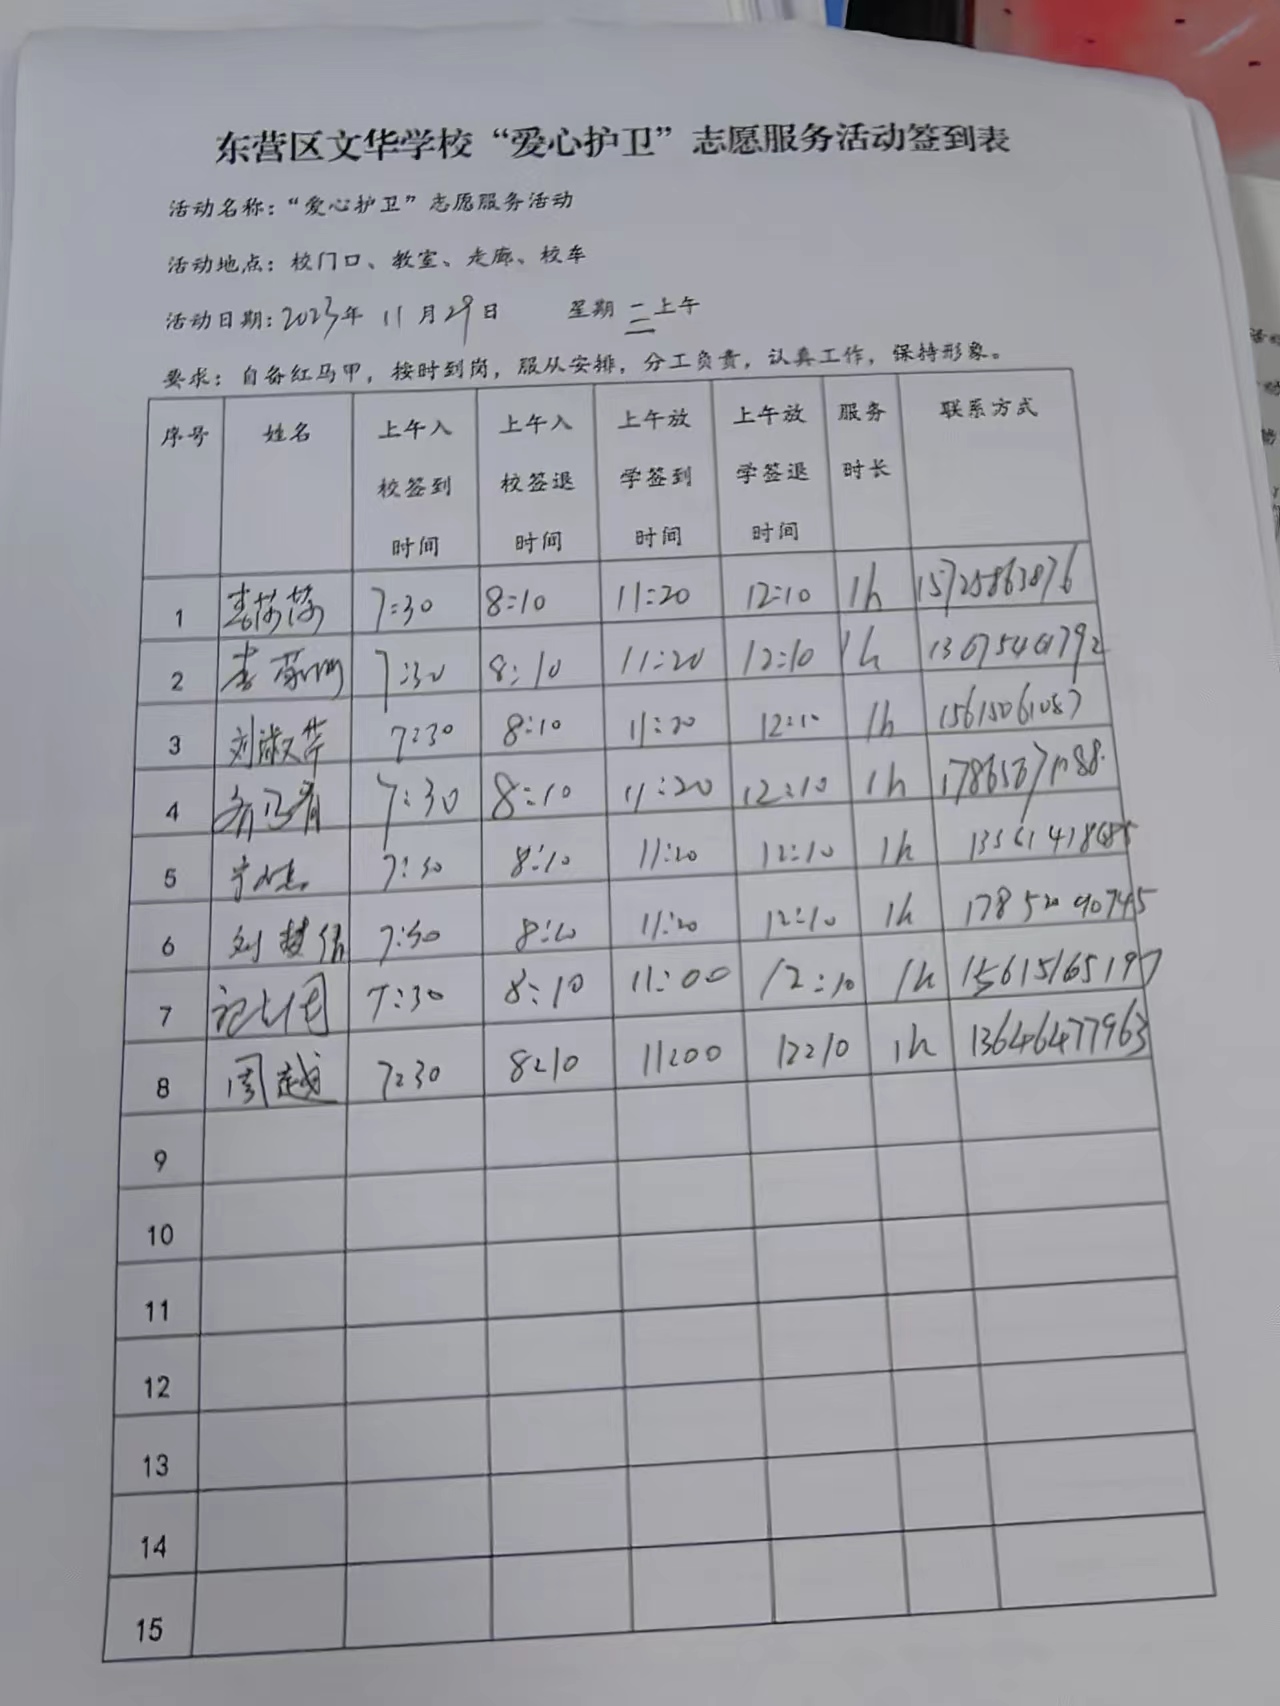 东营区文华学校“爱心护卫”志愿服务活动签到表
活动名称：“爱心护卫”志愿服务活动
活动地点：校门口、教室、走廊、校车
活动日期：2023年 11月29日 星期三上午
要求：自备红马甲，按时到岗，服从安排，分工负责，认真工作，保持形象。
序号 姓名 上午入校签到时间 上午入校签退时间 上午放学签到时间 上午放学签退时间 服务时长 联系方式
1 李莎莎 7:30 8:10 11:20 12:10 1h 15725863876
2 李 7:30 8:10 11:20 12:10 1h
3 刘淑华 7:30 8:10 11:20 12:10 1h 15615061087
4 7:30 8:10 11:20 12:10 1h
5 7:30 8:10 11:20 12:10 1h
6 刘梦倩 7:30 8:10 11:20 12:10 1h
7 7:30 8:10 11:00 12:10 1h 15615165197
8 周越 7:30 8:10 11:00 12:10 1h 13646477963
9
10
11
12
13
14
15